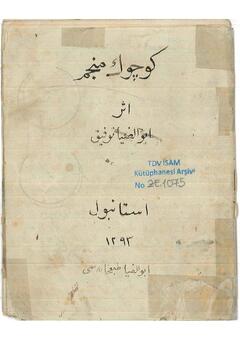 كوچوك منجم
اثر
ابوالضيا توفيق
TDV İSAM
Kütüphanesi Arşivi
No 2E.1075
استانبول
١٢٩٣
ابوالضيا مطبعه سى